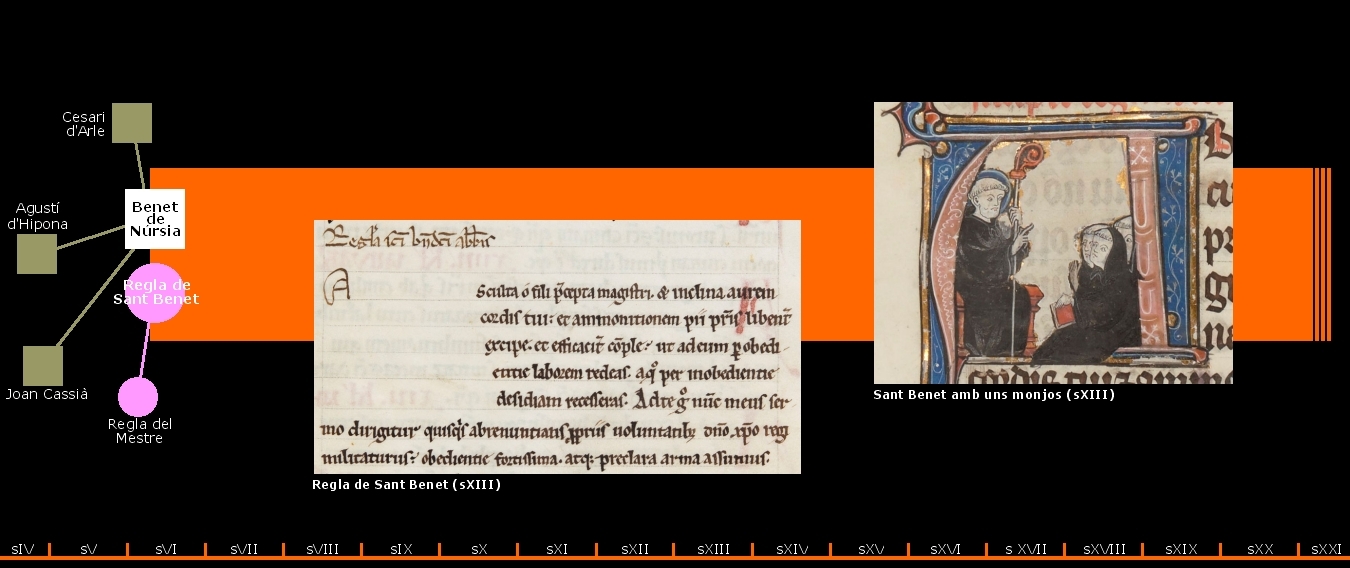 Cesari
d'Arle
Agustí
d'Hipona
Benet
de
Núrsia
Regla de
Sant Benet
Joan Cassià
Regla del
Mestre
Regla sci bndci abbis
A
Sculta o fili pcepta magistri. & inclina aurem
cordis tui: et ammonitionem pii pris libent
excipe. et efficacit cople: ut ad eum p obedi
entie laborem redeas. a q per inobedientie
desidiam recesseras. Ad te g nunc meus ser
mo dirigitur quisqs abrenuntians pprus uoluntatib; dno xpo regi
militaturus: obedientie fortissima. atq; preclara arma assumis.
Regla de Sant Benet (sXIII)
Sant Benet amb uns monjos (sXIII)
sIV sV sVI sVII sVIII sIX sX sXI sXII sXIII sXIV sXV sXVI s XVII sXVIII sXIX sXX sXXI